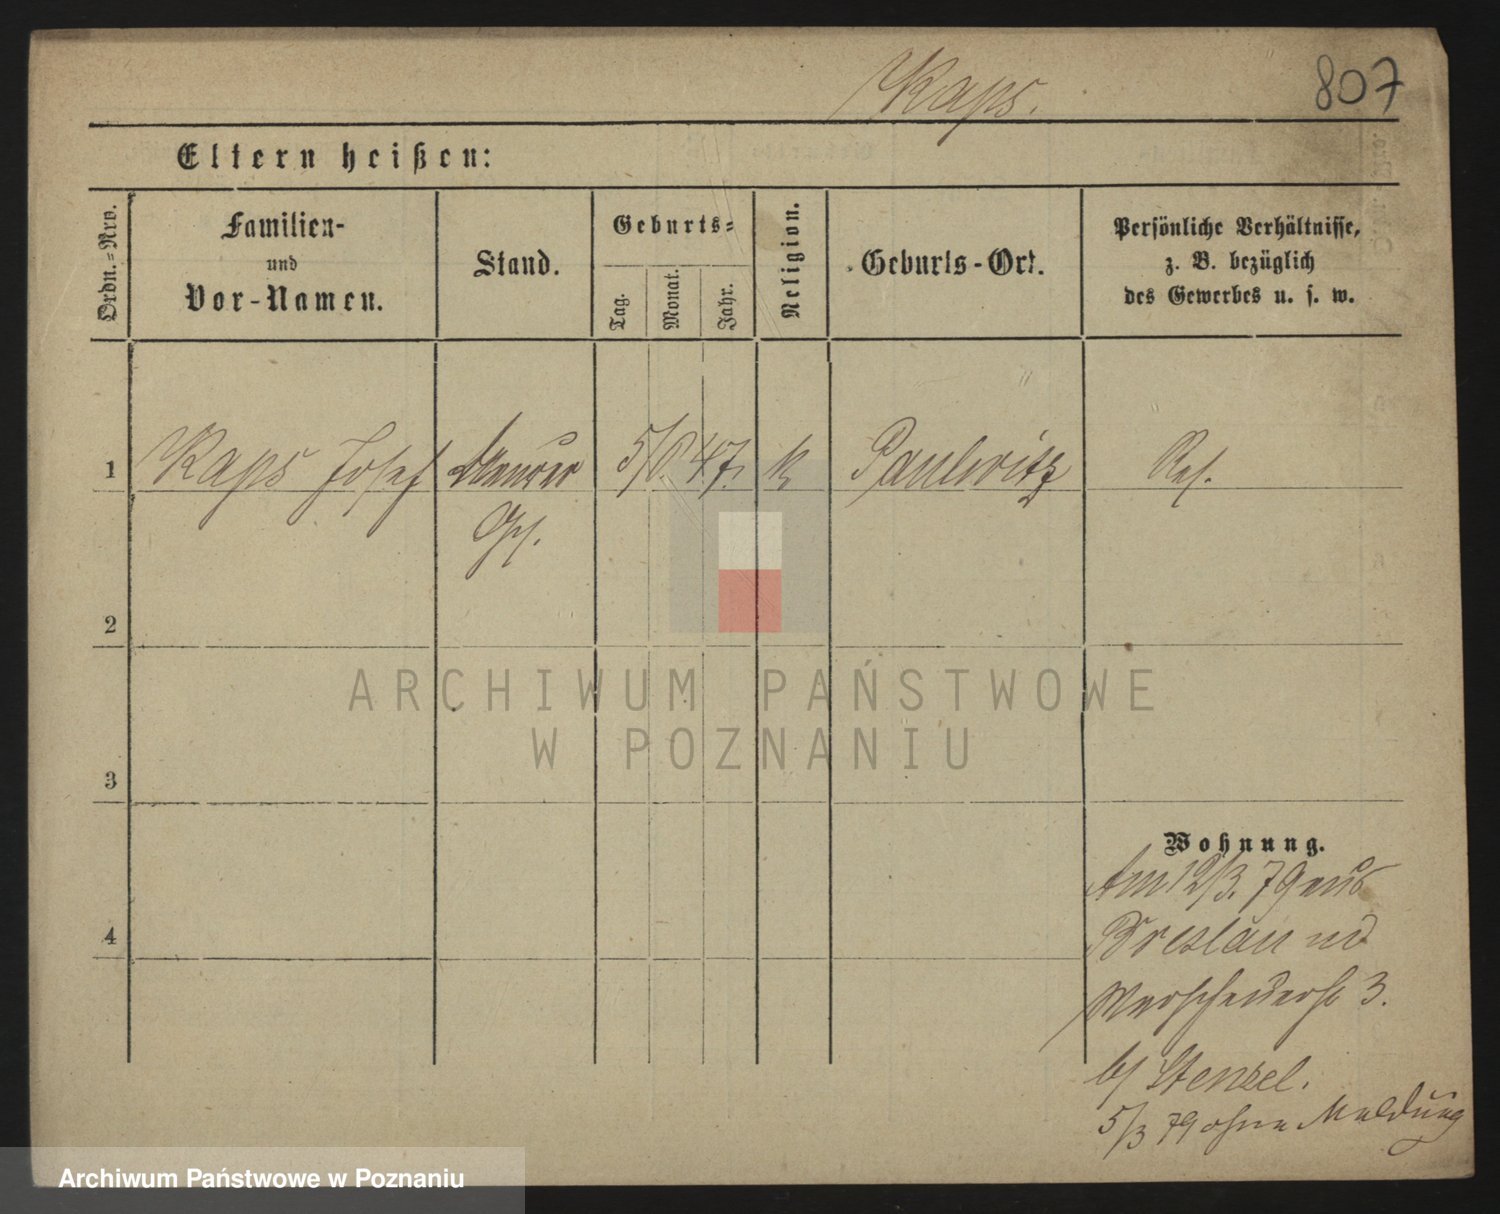 Kaps.
807
Eltern heißen:
Ordn.=Nro.
Familien-
und
Vor-Namen.
Stand.
Geburts=
Tag.
Monat.
Jahr.
Religion.
Geburts-Ort.
Persönliche Verhältnisse,
z. B. bezüglich
des Gewerbes u. s. w.
1
Kaps Josef
Maurer
Gs.
5/8. 47.
k
Paulwitz
Res.
2
3
4
Wohnung.
Am 12/3. 79 aus
Breslau nd
3.
b/ Stenzel.
5/3 79 ohne Meldung
ARCHIWUM PAŃSTWOWE
W POZNANIU
Archiwum Państwowe w Poznaniu